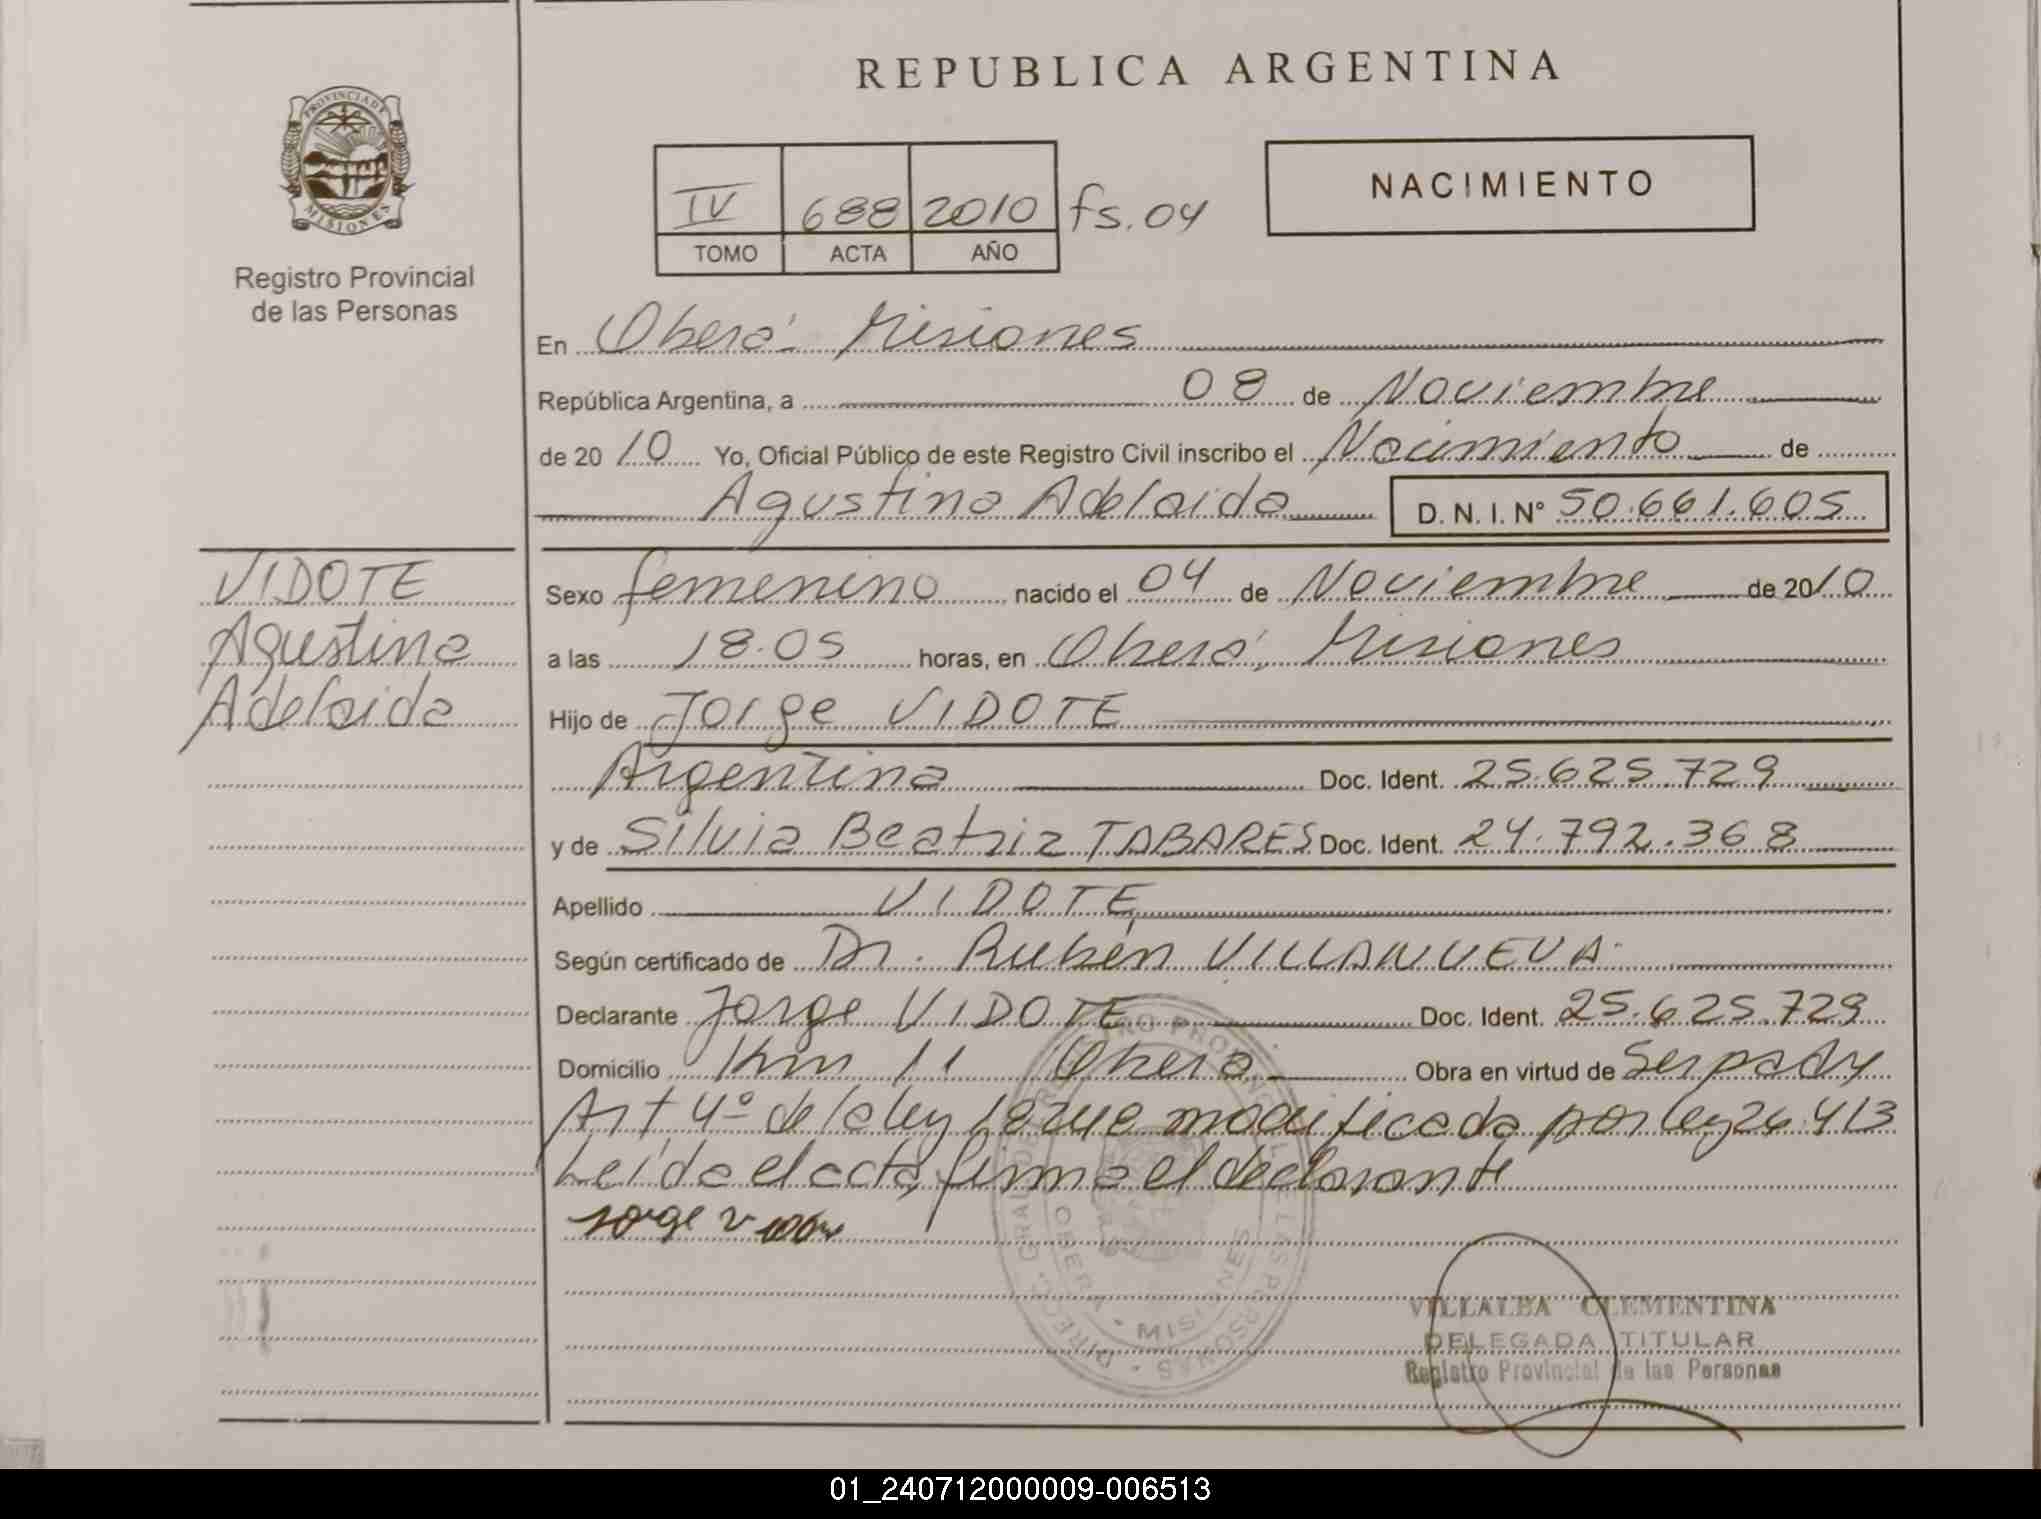 REPUBLICA ARGENTINA
PROVINCIA DE
MISIONES
Registro Provincial
de las Personas
IV 688 2010 fs. 04
TOMO ACTA AÑO
NACIMIENTO
En Oberá - Misiones
República Argentina, a 08 de Noviembre
de 2010 Yo, Oficial Público de este Registro Civil inscribo el Nacimiento de
Agustina Adelaida D. N. I. N° 50.661.605
VIDOTE
Agustina
Adelaida
Sexo femenino nacido el 04 de Noviembre de 2010
a las 18.05 horas, en Oberá, Misiones
Hijo de Jorge VIDOTE
Argentina Doc. Ident. 25.625.729
y de Silvia Beatriz TABARES Doc. Ident. 24.792.368
Apellido VIDOTE
Según certificado de Dr. Rubén VILLANUEVA
Declarante Jorge VIDOTE Doc. Ident. 25.625.729
Domicilio Km 11 Oberá Obra en virtud de
Art 4º de la ley modificada por ley 26.413
Leída el acta, firma el declarante
Jorge
OBERA • MISIONES
VILLALBA CLEMENTINA
DELEGADA TITULAR
Registro Provincial de las Personas
01_240712000009-006513